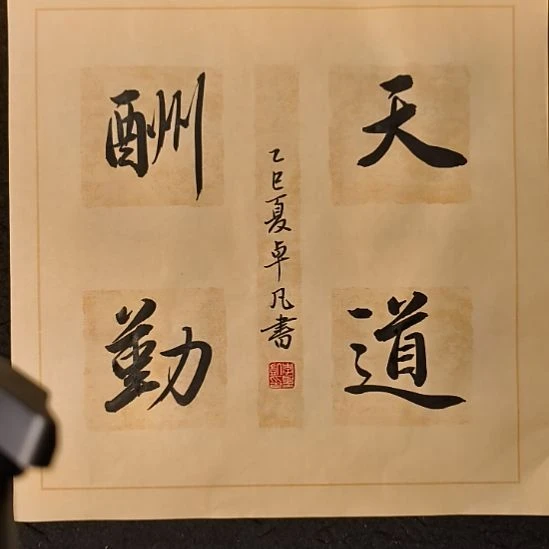 天道
酬勤
乙巳夏卓凡書